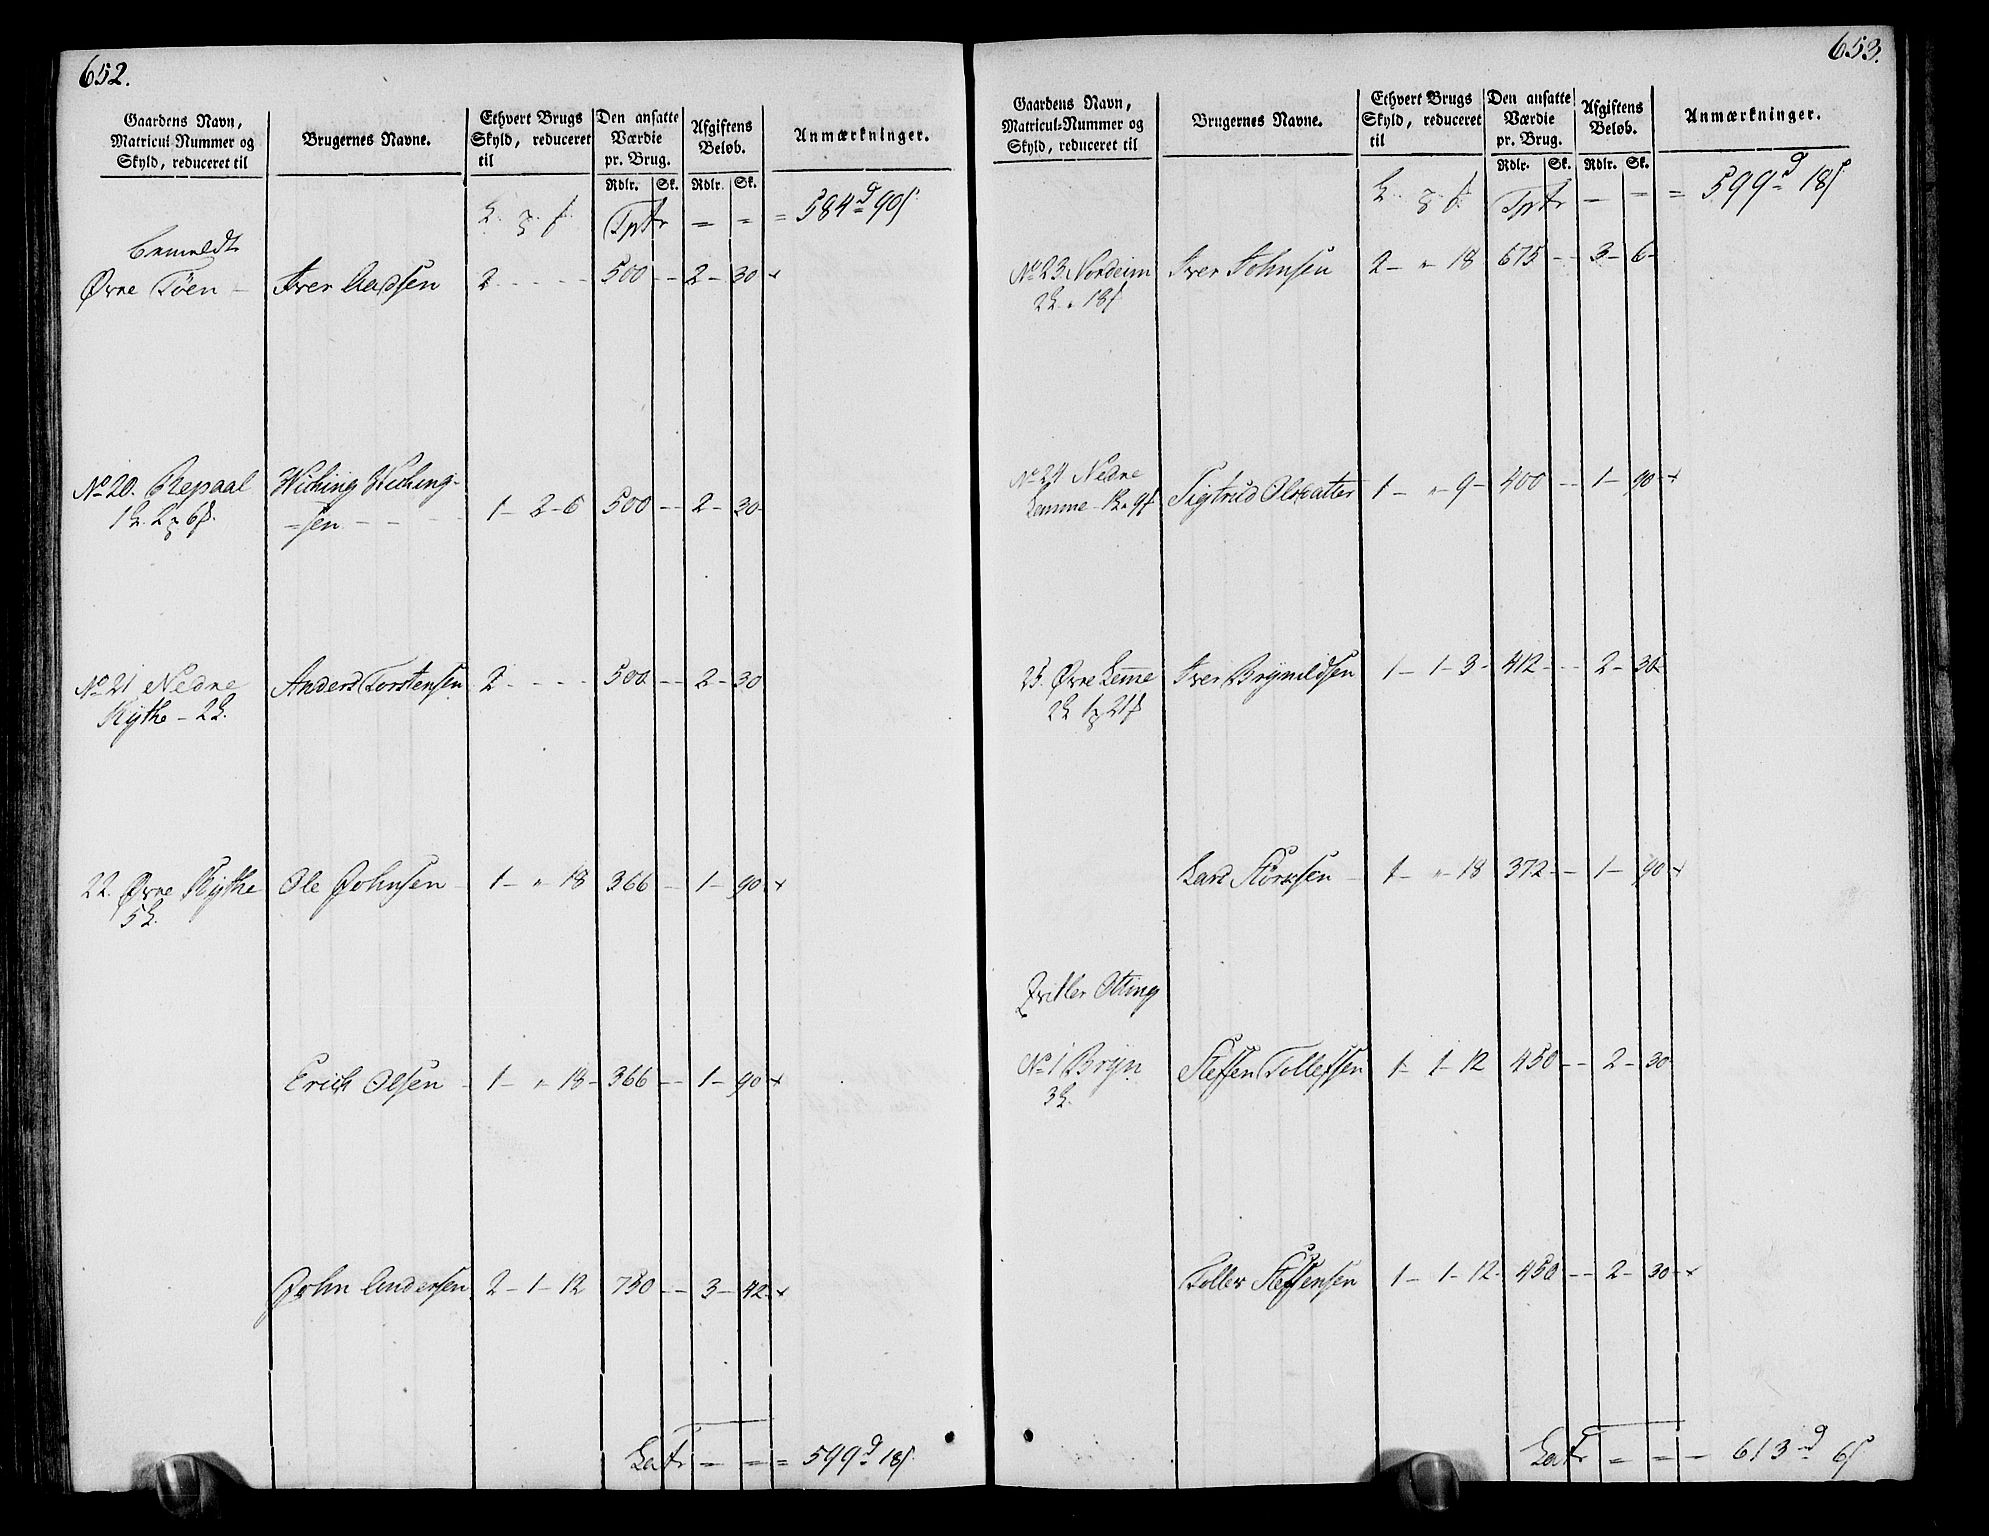 652.
Gaardens Navn, Matricul-Nummer og Skyld, reduceret til
Brugernes Navne.
Ethvert Brugs Skyld, reduceret til
Den ansatte Værdie pr. Brug.
Afgiftens Beløb.
Anmærkninger.
Rdlr. Sk. Rdlr. Sk.
Tpt = = = 584 d 90 s.
bemeldte
Øvre Töen — Iver Aadsen 2 - - - - 500 -- 2 - 30 x
No 20. Repaal Wiching Wiching-
1 L. 2 6 s. -sen - - - 1 - 2 - 6 500 -- 2 - 30
No 21 Nedre Anders Torstensen 2 - - - - 500 -- 2 - 30
Kythe - 2 L.
22. Øvre Kythe Ole Johnsen 1 - " 18 366 -- 1 - 90 x
5 L.
Erich Olsen - 1 - " 18 - 366 -- 1 - 90 x
John Andersen 2 - 1 - 12 750 -- 3 - 42 x
Lat = = = 599 d 18 s.
653.
Gaardens Navn, Matricul-Nummer og Skyld, reduceret til
Brugernes Navne.
Ethvert Brugs Skyld, reduceret til
Den ansatte Værdie pr. Brug.
Afgiftens Beløb.
Anmærkninger.
Rdlr. Sk. Rdlr. Sk.
Tpt = = = 599 d 18 s
No 23. Nordeim Iver Johnsen 2 - " 18 675 -- 3 - 6 -
2 L. " 18 s
No 24 Nedre
Lemme - 1 L. " 9 s Sigtrud Olsdatter 1 - " 9 - 400 -- 1 - 90 x
25. Øvre Lemme Iver Brynildsen 1 - 1 - 3 - 412 -- 2 - 30
2 L 1 21 s
Lars 1 - " 18 372 -- 1 - 90 x
Otting
No 1 Bryn Steffen Tollefsen 1 - 1 - 12 450 -- 2 - 30
3 L.
Tollev Steffensen 1 - 1 - 12 - 450 -- 2 - 30 x
Lat = = = 613 d 6 s